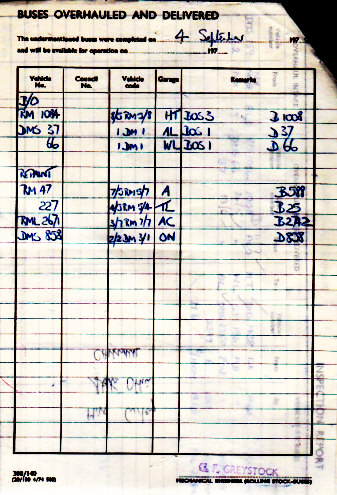 BUSES OVERHAULED AND DELIVERED
The undermentioned buses were completed on 4 September 197
and will be available for operation on 197
Vehicle No. Council No. Vehicle code Garage Remarks
B/O
RM 1084 8/5RM 7/8 HT BOS 3 B 1008
DMS 37 1 DM 1 AL BOS 1 D 37
66 1 DM 1 WL BOS 1 D 66
REPAINT
RM 47 7/5RM 5/7 A B 588
227 4/5RM 5/4 B 25
RML 2671 3/7RM 7/7 AC
DMS 858 2/2DM 3/1 ON D 858
INSPECTION REPORT
G. F. GREYSTOCK
MECHANICAL ENGINEER (ROLLING STOCK—BUSES)